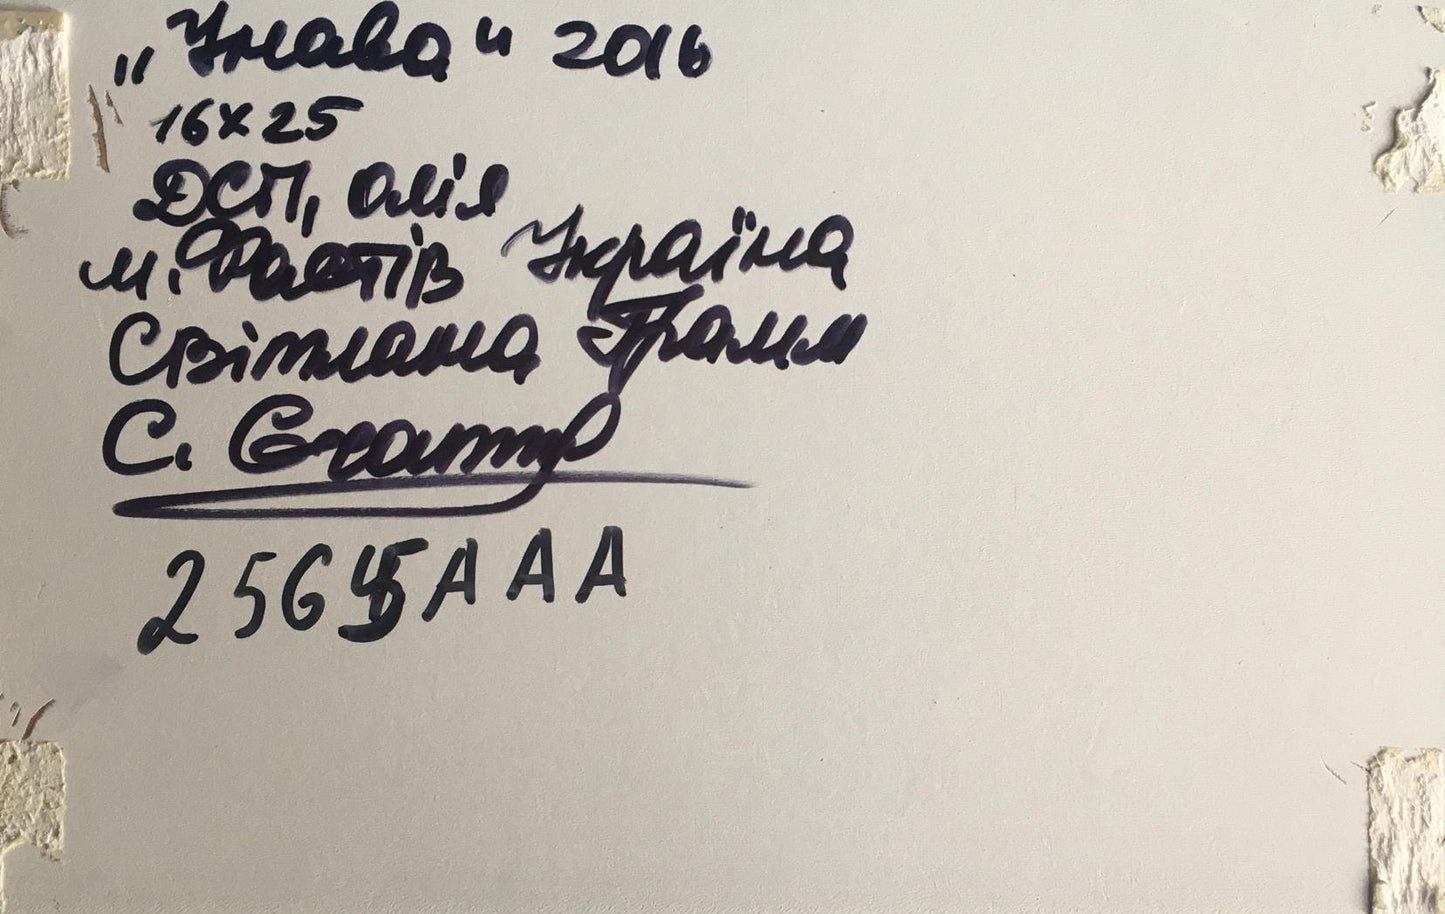 „Унава" 2016
16х25
ДСП, олія
м. Фастів Україна
Світлана Грамм
С.
2565AAA